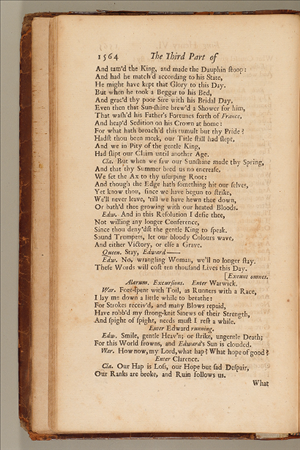 1564 The Third Part of
And tam'd the King, and made the Dauphin stoop:
And had he match'd according to his State,
He might have kept that Glory to this Day.
But when he took a Beggar to his Bed,
And grac'd thy poor Sire with his Bridal Day,
Even then that Sun-shine brew'd a Shower for him,
That wash'd his Father's Fortunes forth of France,
And heap'd Sedition on his Crown at home:
For what hath broach'd this tumult but thy Pride?
Hadst thou been meek, our Title still had slept,
And we in Pity of the gentle King,
Had slipt our Claim until another Age.
Cla. But when we saw our Sunshine made thy Spring,
And that thy Summer bred us no encrease,
We set the Ax to thy usurping Root:
And though the Edge hath something hit our selves,
Yet know thou, since we have begun to strike,
We'll never leave, 'till we have hewn thee down,
Or bath'd thee growing with our heated Bloods.
Edw. And in this Resolution I defie thee,
Not willing any longer Conference,
Since thou deny'dst the gentle King to speak.
Sound Trumpets, let our bloody Colours wave,
And either Victory, or else a Grave.
Queen. Stay, Edward——
Edw. No, wrangling Woman, we'll no longer stay.
These Words will cost ten thousand Lives this Day.
[Exeunt omnes.
Alarum. Excursions. Enter Warwick.
War. Fore-spent with Toil, as Runners with a Race,
I lay me down a little while to breathe:
For Strokes receiv'd, and many Blows repaid,
Have robb'd my strong-knit Sinews of their Strength,
And spight of spight, needs must I rest a while.
Enter Edward running.
Edw. Smile, gentle Heav'n; or strike, ungentle Death;
For this World frowns, and Edward's Sun is clouded.
War. How now, my Lord, what hap? What hope of good?
Enter Clarence.
Cla. Our Hap is Loss, our Hope but sad Despair,
Our Ranks are broke, and Ruin follows us.
What